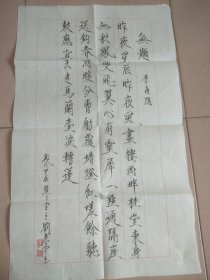 無題 李商隱
昨夜星辰昨夜風畫樓西畔桂堂東身
無彩鳳雙飛翼心有靈犀一點通隔座
送鉤春酒暖分曹射覆蠟燈紅嗟餘聽
鼓應官去走馬蘭臺類轉蓬